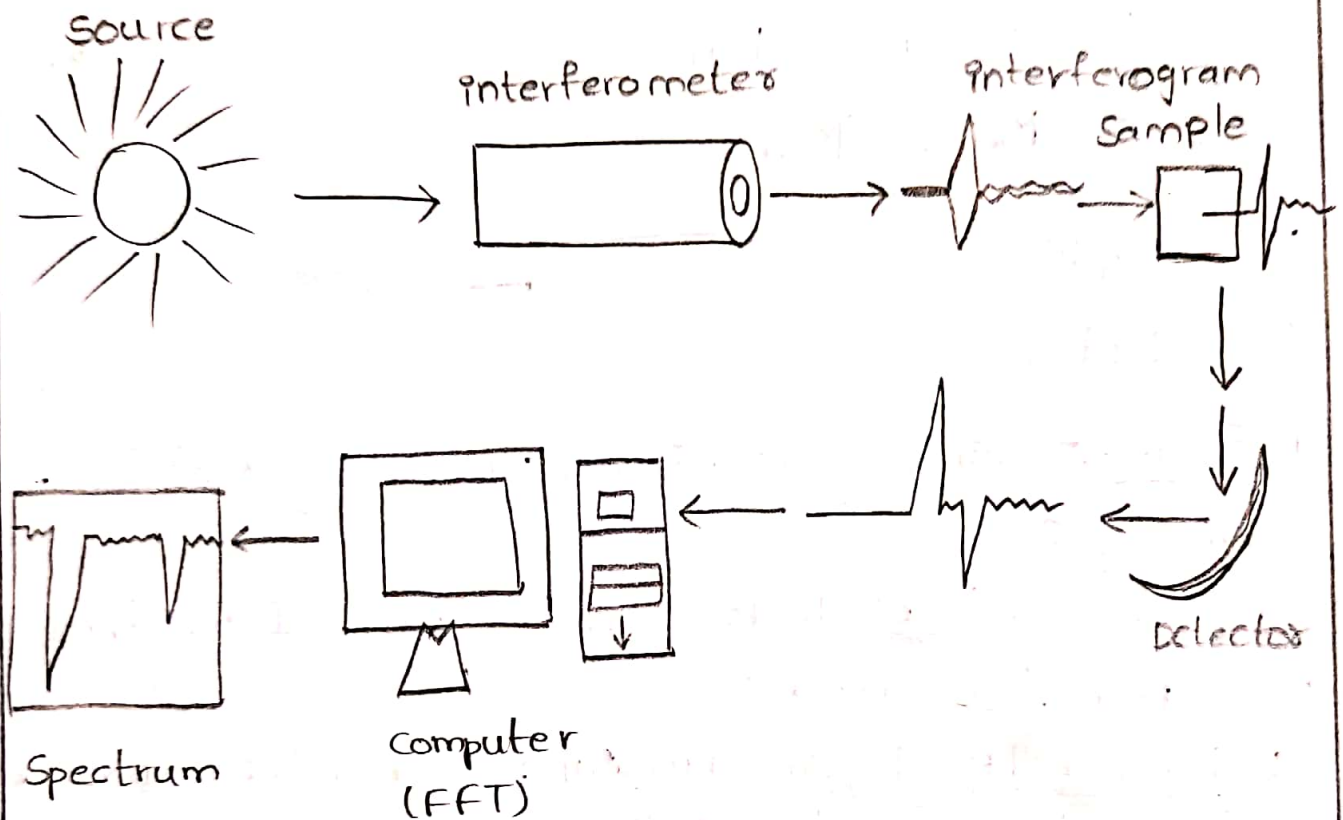 Source
interferometer
interferogram
Sample
Detector
Computer
(FFT)
Spectrum